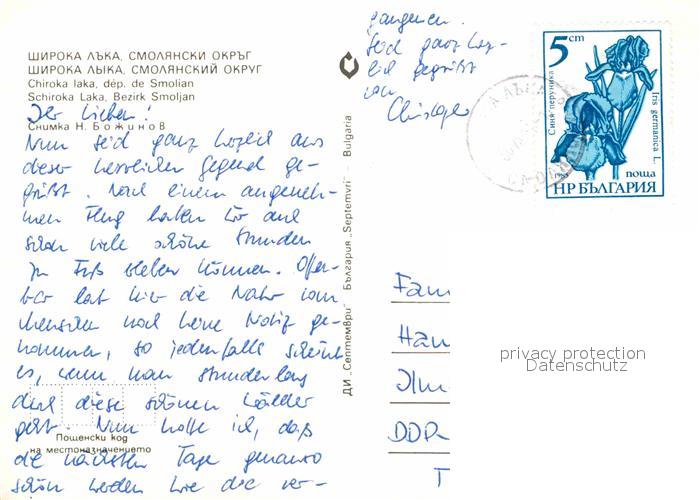 ШИРОКА ЛЪКА, СМОЛЯНСКИ ОКРЪГ
ШИРОКА ЛЫКА, СМОЛЯНСКИЙ ОКРУГ
Chiroka laka, dép. de Smolian
Schiroka Laka, Bezirk Smoljan
Ihr Lieben!
Снимка Н. Божинов
Nun seid ganz herzlich aus
dieser herrlichen Gegend ge-
grüßt. Nach einem angeneh-
men Flug haben wir auch
schon viele schöne Stunden
zu Fuß erleben können. Offen-
bar hat hier die Natur vom
Menschen noch keine Notiz ge-
nommen, so jedenfalls scheint
es, wenn man stundenlang
durch diese schönen Wälder
geht. Nun hoffe ich, daß
Пощенски код
на местоназначението
die nächsten Tage genauso
schön werden wie die ver-
gangenen.
Seid ganz herz-
lich gegrüßt
von
ДИ „Септември" България „Septemvri" Bulgaria
5 cm
Синя перуника
Iris germanica L.
1985
поща
НР БЪЛГАРИЯ
Fam
Han
Ilm
DDR-
T
privacy protection
Datenschutz